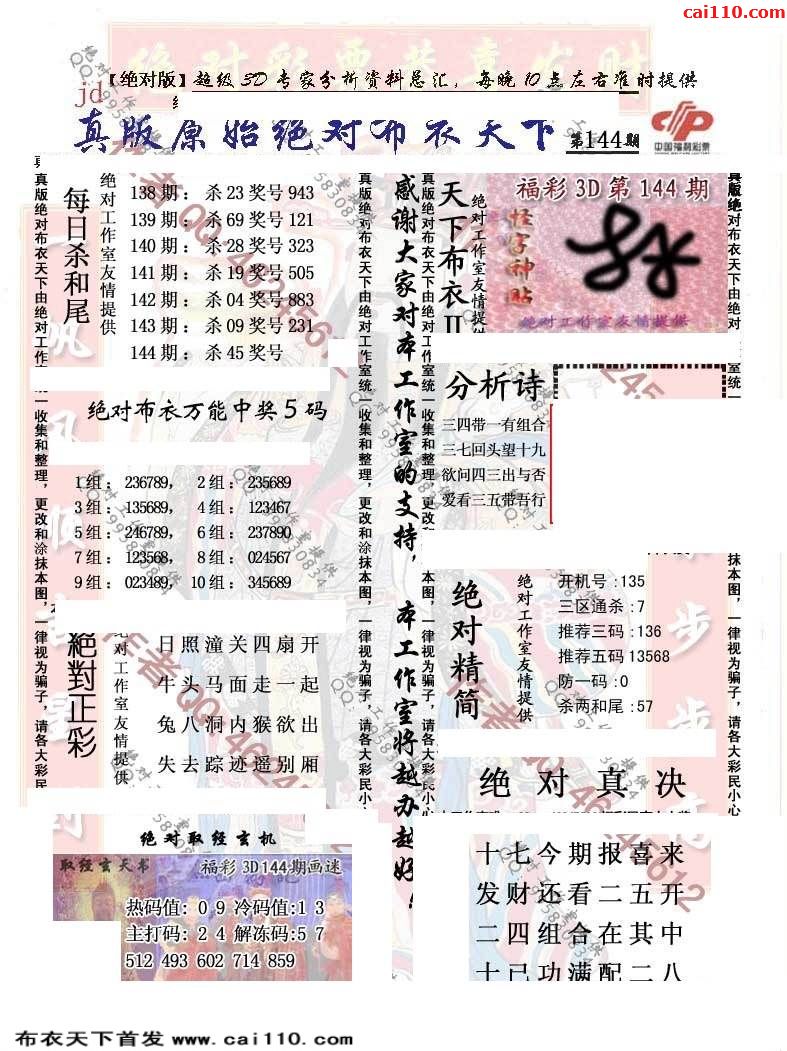 cai110.com
【绝对版】超级3D专家分析资料总汇，每晚10点左右准时提供
jd
真版原始绝对布衣天下
第144期
中国福利彩票
每日杀和尾
绝对工作室友情提供
138期：杀23奖号943
139期：杀69奖号121
140期：杀28奖号323
141期：杀19奖号505
142期：杀04奖号883
143期：杀09奖号231
144期：杀45奖号
绝对布衣万能中奖5码
1组：236789，2组：235689
3组：135689，4组：123467
5组：246789，6组：237890
7组：123568，8组：024567
9组：023489，10组：345689
絕對正彩
绝对工作室友情提供
日照潼关四扇开
牛头马面走一起
兔八洞内猴欲出
失去踪迹遥别厢
绝对取经玄机
取经玄天书
福彩3D144期画迷
热码值：09冷码值:13
主打码：24解冻码:57
512 493 602 714 859
真版绝对布衣天下由绝对工作室统一收集和整理，更改和涂抹本图，一律视为骗子，请各大彩民小心
感谢大家对本工作室的支持，本工作室将越办越好
真版绝对布衣天下由绝对工作室统一收集和整理，更改和涂抹本图，一律视为骗子，请各大彩民小心
天下布衣II
绝对工作室友情提供
福彩3D第144期
怪字神贴
绝对工作室友情提供
分析诗
三四带一有组合
三七回头望十九
欲问四三出与否
爱看三五带吾行
绝对精简
绝对工作室友情提供
开机号:135
三区通杀:7
推荐三码:136
推荐五码13568
防一码:0
杀两和尾:57
绝对真决
十七今期报喜来
发财还看二五开
二四组合在其中
十已功满配二八
布衣天下首发 www.cai110.com